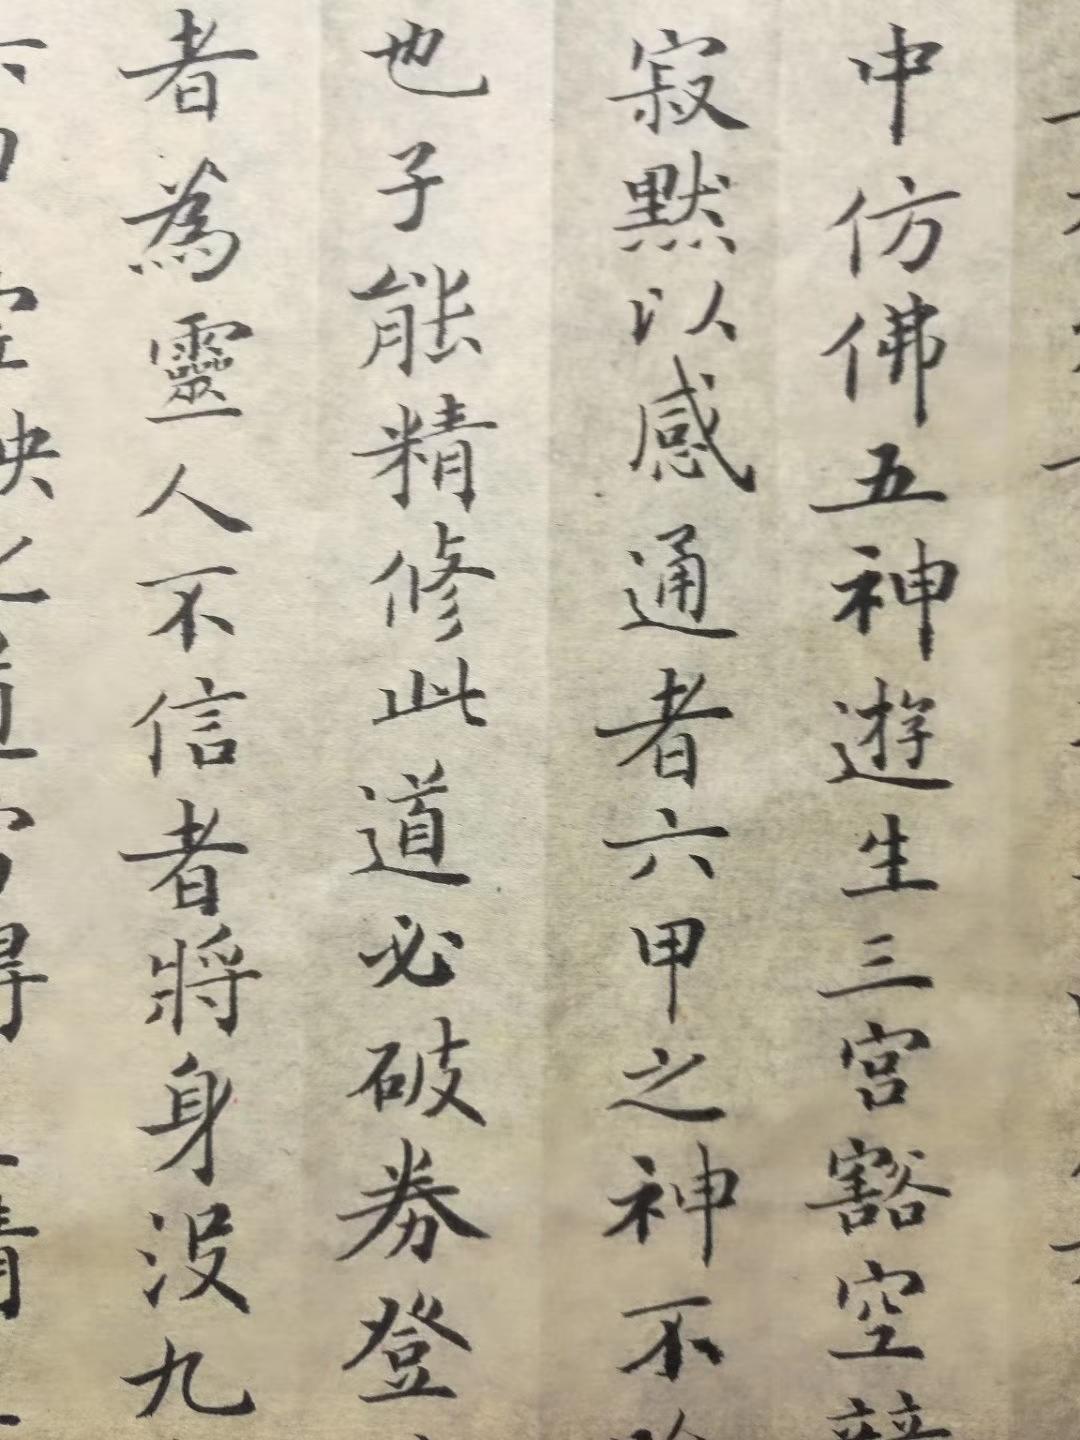 中仿佛五神遊生三宮豁空
寂默以感通者六甲之神不
也子能精修此道必破券登
者為靈人不信者將身没九